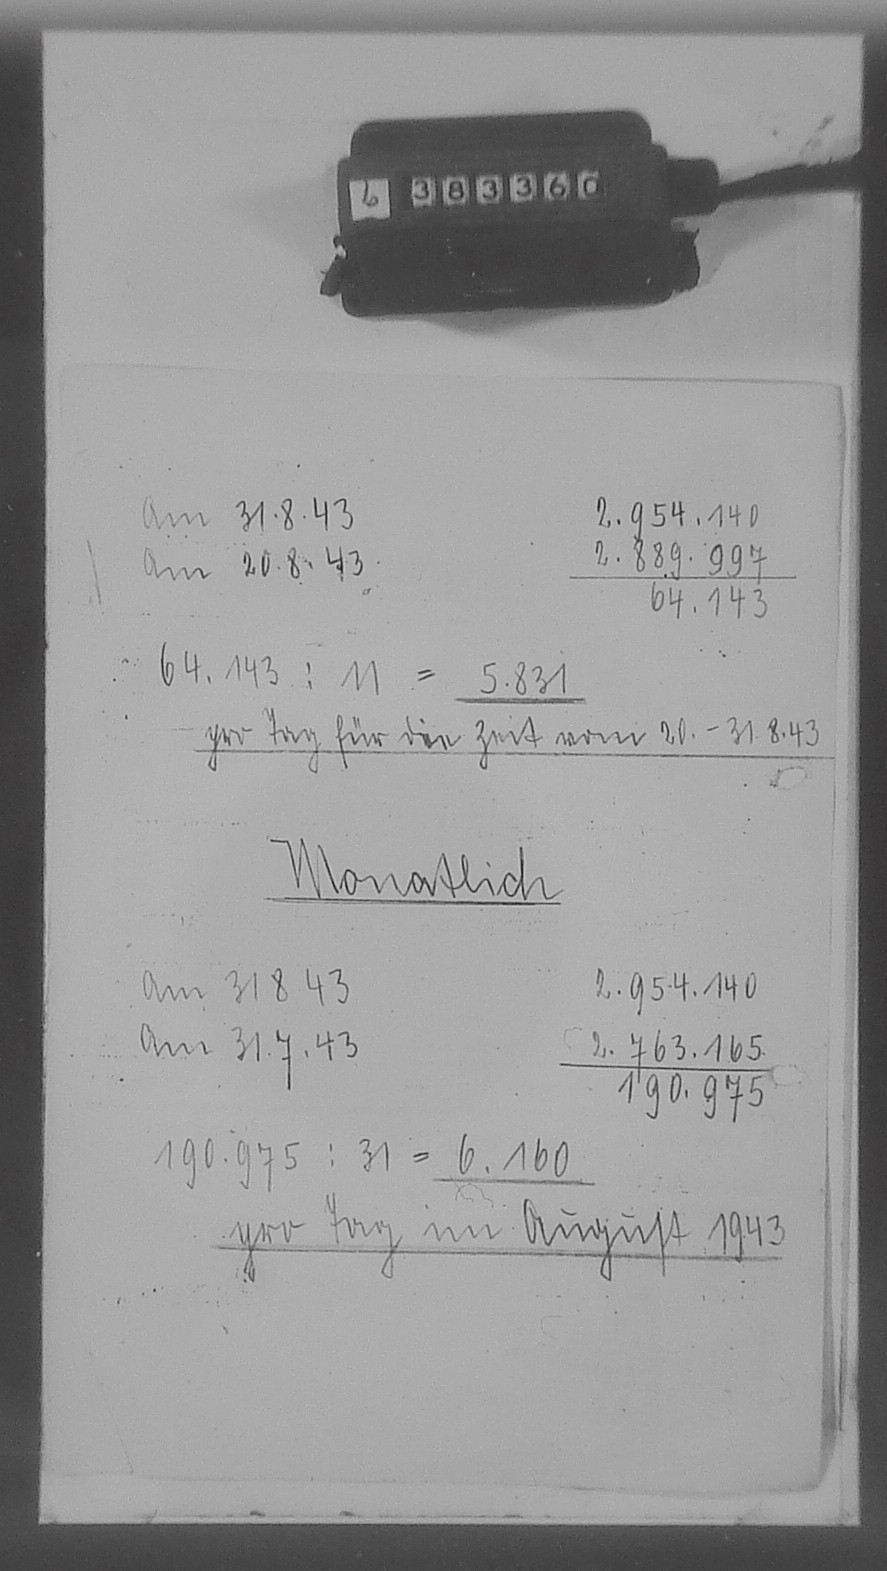 6 383360
Am 31.8.43 2.954.140
Am 20.8.43. 2.889.997
64.143
64.143 : 11 = 5.831
pro Tag für die Zeit vom 20.-31.8.43
Monatlich
Am 31 8 43 2.954.140
Am 31.7.43 2.763.165
190.975
190.975 : 31 = 6.160
pro Tag im August 1943